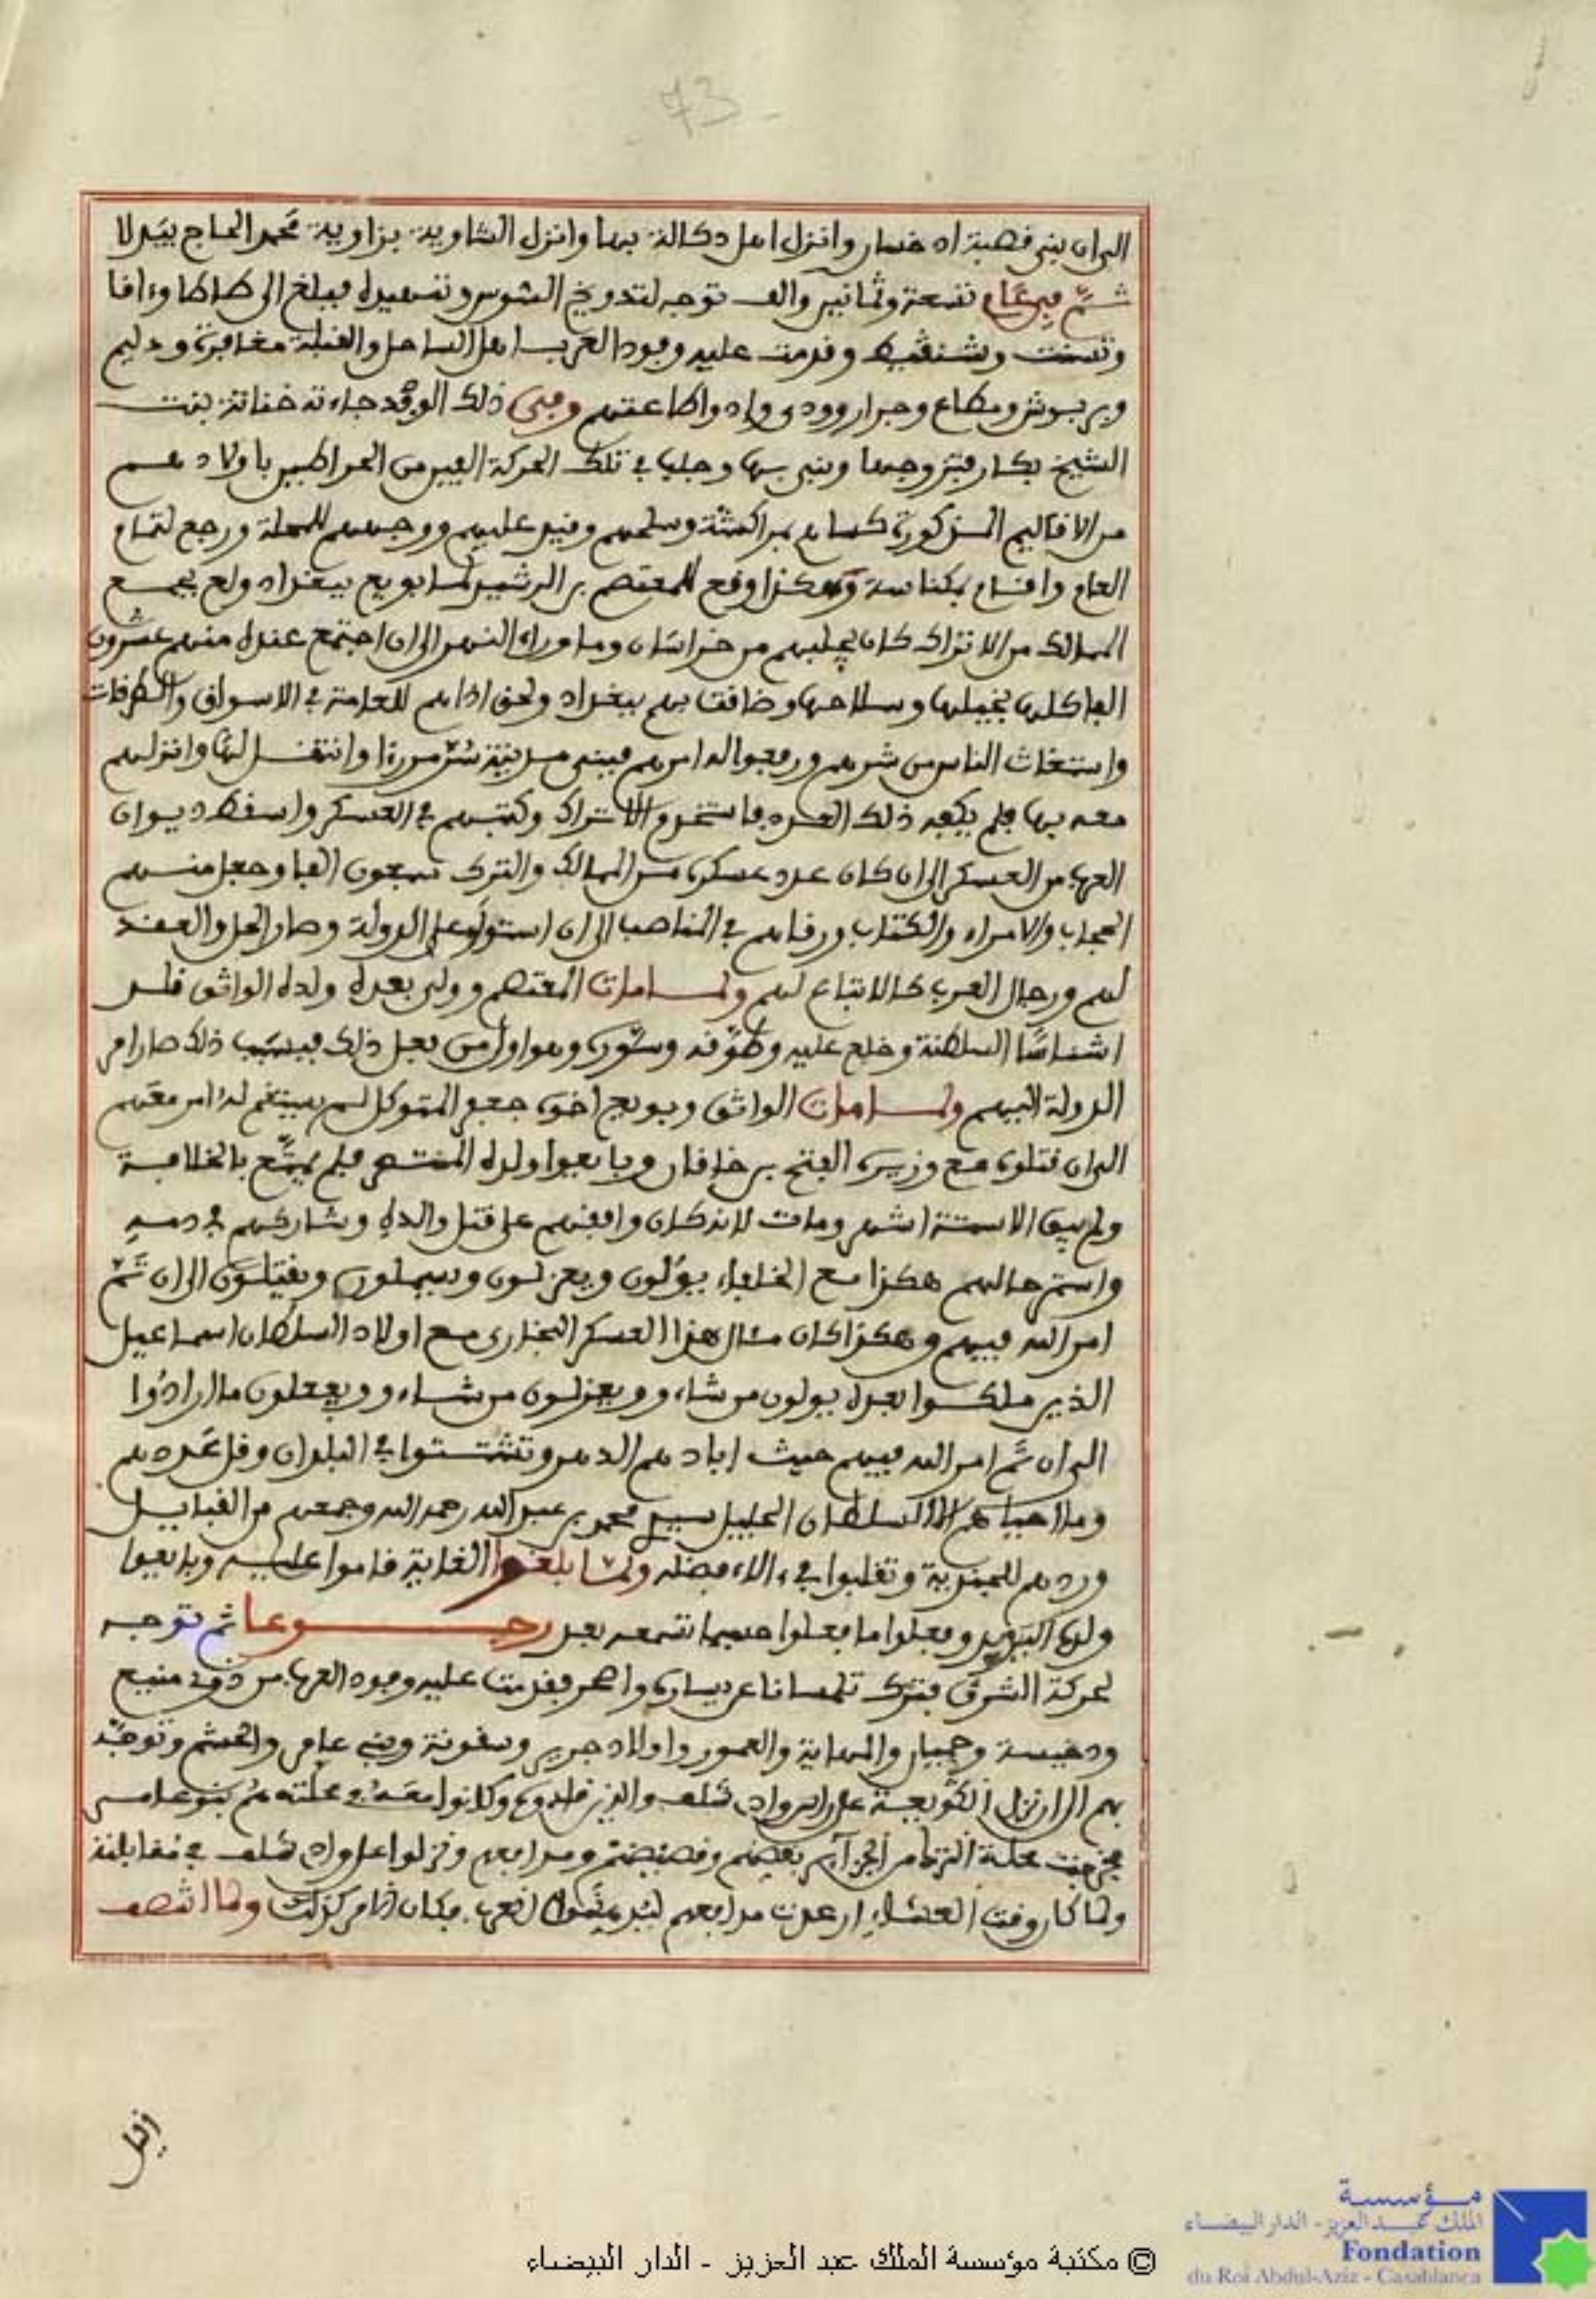 73
الى ان بنى قصبة ادخسان وانزل اهل دكالة بها وانزل الشاوية بزاوية محمد الحاج بتدلا
ثم في عام تسعة وثمانين والف توجه لتدويخ السوس وتمهيده فبلغ الى طاطا وءافا
وتسنت وشنقيط وقدمت عليه وفود العرب اهل الساحل والقبلة مغافرة ودليم
وبربوش ومطاع وجرار وودي وادوا طاعتهم وفي ذلك الوفد جاءته خناثة بنت
الشيخ بكار فتزوجها وبنى بها وجلب في تلك الحركة الفين من الحراطين باولادهم
من الاقاليم المذكورة كساهم بمراكشة وسلحهم وقيد عليهم ووجههم للمحلة ورجع لتمام
العام واقام بمكناسة وهكذا وقع للمعتصم بن الرشيد لما بويع ببغداد ولع بجمع
المماليك من الاتراك كان يجلبهم من خراسان وما وراء النهر الى ان اجتمع عنده منهم عشرون
الفا كلها بخيلها وسلاحها وضاقت بهم بغداد ولحق اذاهم للعامة في الاسواق والطرقات
واستغاث الناس من شرهم ورفعوا له امرهم فبنى مدينة سر من رءا وانتقل لها وانزلهم
معه بها فلم يكفه ذلك العدد فاستخدم الاتراك وكتبهم في العسكر واسقط ديوان
العرب من العسكر الى ان كان عدد عسكره من المماليك والترك سبعون الفا وجعل منهم
الحجاب والامراء والكتاب ورقاهم في المناصب الى ان استولو على الدولة وصار الحل والعقد
لهم ورجال العرب كالاتباع لهم ولما مات المعتصم وولي بعده ولده الواثق قلد
اشناسا السلطنة وخلع عليه وطوقه وسوره وهو اول من فعل ذلك فبسبب ذلك صار امر
الدولة اليهم ولما مات الواثق وبويع اخوه جعفر المتوكل لم يستقم له امر معهم
الى ان قتلوه مع وزيره الفتح بن خاقان وبايعوا ولده المنتصر فلم يمتع بالخلافة
ولم يبق الا ستة اشهر ومات لانه كان وافقهم على قتل والده وشاركهم في دمه
واستمر حالهم هكذا مع الخلفاء يولون ويعزلون ويسملون ويقتلون الى ان تم
امر الله فيهم وهكذا كان مثال هذا العسكر البخاري مع اولاد السلطان اسماعيل
الذين ملكوا بعده يولون من شاءوو ويعزلون من شاءوو ويفعلون ما ارادوا
الى ان تم امر الله فيهم حيث ابادهم الدهر وتشتتوا في البلدان وقل عددهم
وما احياهم الا السلطان الجليل سيدي محمد بن عبد الله رحمه الله وجمعهم من القبايل
وردهم للجندية وتقلبوا في ءالاء فضله ولما بلغوا الغاية قاموا عليه وبايعوا
ولده اليزيد وفعلوا ما فعلوا حسبما تسمعه بعد رجوعا ثم توجه
لحركة الشرق فترك تلمسانا عن يساره واصحر فقدمت عليه وفود العرب من ذوي منيع
ودخيسة وحميان والمهاية والعمور واولاد جرير وسقونة وبني عامر والحشم وتوجه
بهم الى ان نزل القويعة على راس وادي شلف والذين قلدوه وكانوا معه في محلته هم بنو عامر
فخرجت محلة الترك من الجزآئر بقضهم وقضيضهم ومدافعهم ونزلوا على وادي شلف في مقابلته
ولما كان وقت العشاء ارعدت مدافعهم ليدهشوا العرب فكان الامر كذلك ولما انتصف
© مكتبة مؤسسة الملك عبد العزيز - الدار البيضاء
مؤسسة
الملك عبد العزيز - الدار البيضاء
Fondation
du Roi Abdul-Aziz - Casablanca